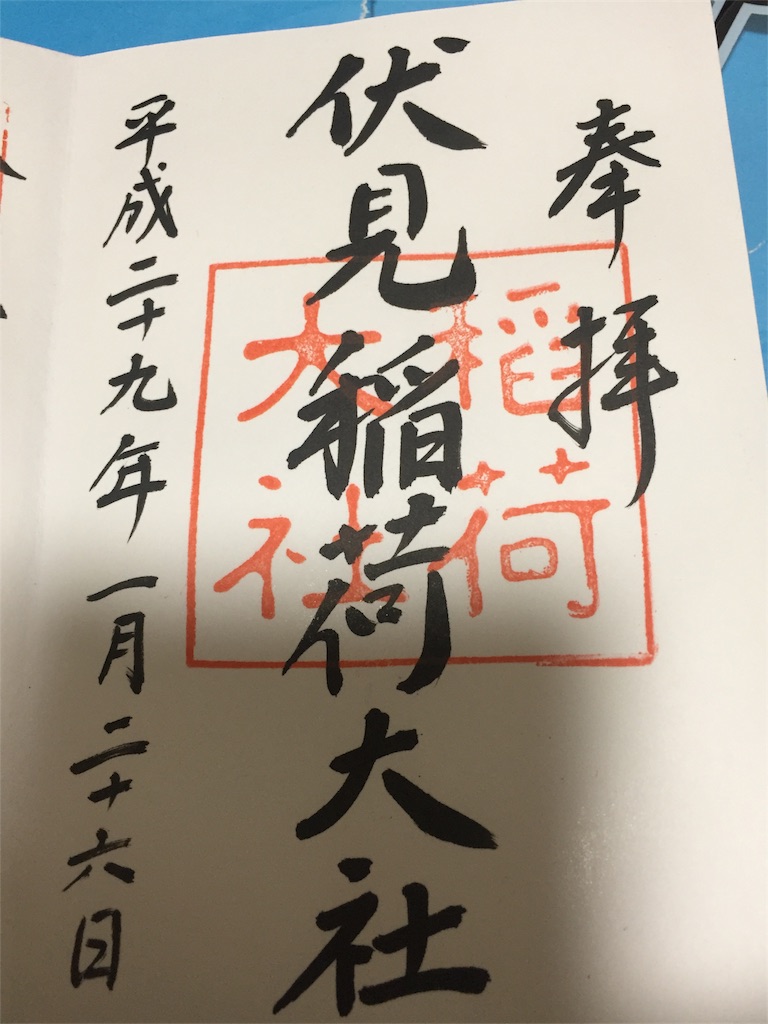 奉拝
伏見稲荷大社
稲荷
大社
平成二十九年一月二十六日